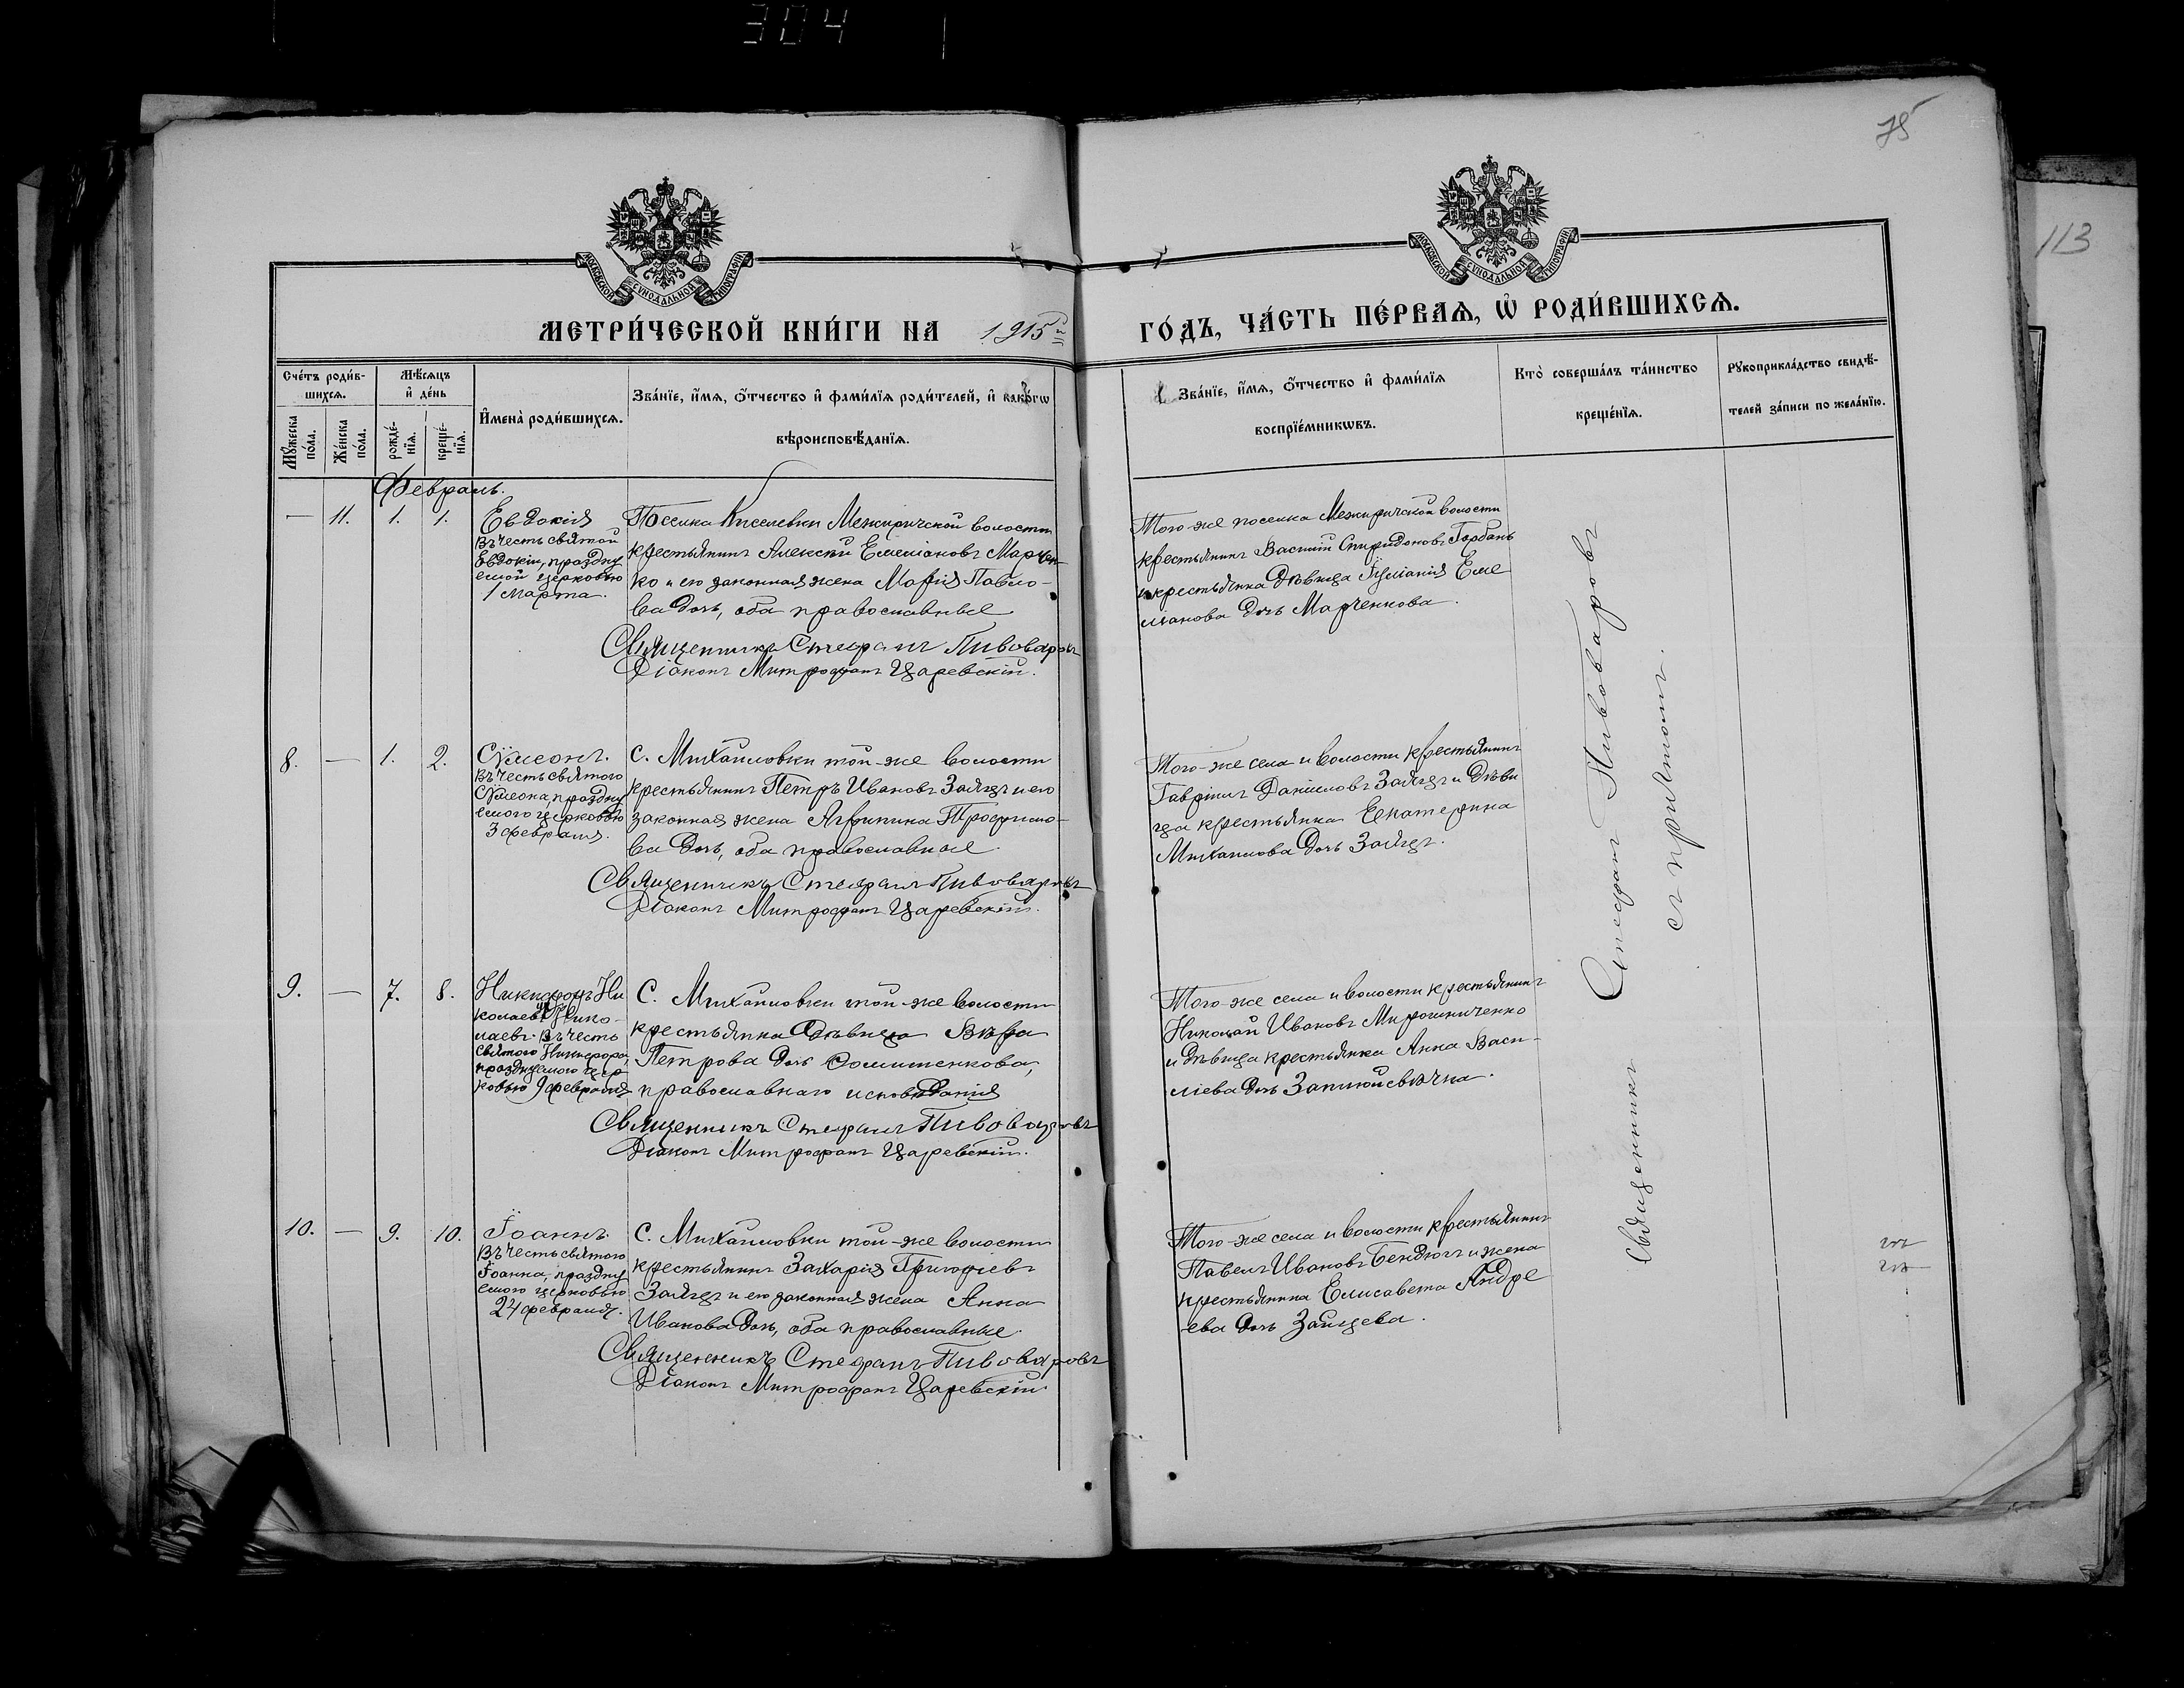 304
75
113
МОСКОВСКОЙ СѴНОДАЛЬНОЙ ТИПОГРАФІИ
МОСКОВСКОЙ СѴНОДАЛЬНОЙ ТИПОГРАФІИ
МЕТРИ́ЧЕСКОЙ КНИ́ГИ НА 1915й
ГО́ДЪ, ЧА́СТЬ ПЕ́РВАЯ, Ѡ҆ РОДИ́ВШИХСЯ.
Сче́тъ роди́в-
шихся.
Мꙋ́жеска
по́ла.
Же́нска
по́ла.
Мѣ́сяцъ
и҆ де́нь
рожде́-
нїя.
креще́-
нїя.
И҆мена̀ роди́вшихся.
Зва́нїе, и҆́мя, ѻ҆́тчество и҆ фами́лїя роди́телей, и҆ како́гѡ
вѣроисповѣ́данїя.
Зва́нїе, и҆́мя, ѻ҆́тчество и҆ фами́лїя
воспрїе́мникѡвъ.
Кто̀ соверша́лъ та́инство
креще́нїя.
Рꙋкоприкла́дство свидѣ́-
телей за́писи по жела́нїю.
Февраль.
— 11. 1. 1.
Евдокія
Въ честь святой
Евдокіи, праздну
емой церковью
1 марта.
Поселка Киселевки Межиричской волости
крестьянинъ Алексѣй Емеліановъ Марчен-
ко и его законная жена Марія Павло-
ва дочь, оба православные
Священникъ Стефанъ Пивоваровъ
Діаконъ Митрофанъ Царевскій.
Того-же поселка Межиричской волости
крестьянинъ Василій Спиридоновъ Горбань
и крестьянка дѣвица Іуліанія Еме
ліанова дочь Марченкова.
8. — 1. 2.
Сѵмеонъ.
Въ честь святого
Сѵмеона, праздну
емого церковью
3 февраля.
С. Михайловки той-же волости
крестьянинъ Петръ Ивановъ Заяцъ и его
законная жена Агрипина Трофимо-
ва дочь, оба православные
Священникъ Стефанъ Пивоваровъ
Діаконъ Митрофанъ Царевскій.
Того-же села и волости крестьянинъ
Гавріилъ Даніиловъ Заяцъ и дѣви
ца крестьянка Екатерина
Михаилова дочь Заяцъ.
9. — 7. 8.
Никифоръ Ни
колаевъ Нико-
лаевъ. Въ честь
святого Никифора,
празднуемого цер
ковью 9 февраля
С. Михайловки той-же волости
крестьянка дѣвица Вѣра
Петрова дочь Сомишенкова,
православнаго исповѣданія
Священникъ Стефанъ Пивоваровъ
Діаконъ Митрофанъ Царевскій.
Того-же села и волости крестьянинъ
Николай Ивановъ Мирошниченко
и дѣвица крестьянка Анна Васи-
ліева дочь Запкойсвѣчка.
10. — 9. 10.
Іоаннъ.
Въ честь святого
Іоанна, праздну
емого церковью
24 февраля.
С. Михайловки той-же волости
крестьянинъ Захарія Григоріевъ
Заяцъ и его законная жена Анна
Иванова дочь, оба православные.
Священникъ Стефанъ Пивоваровъ
Діаконъ Митрофанъ Царевскій.
Того-же села и волости крестьянинъ
Павелъ Ивановъ Бендюгъ и жена
крестьянина Елисавета Андре
ева дочь Зайцева.
Священникъ Стефанъ Пивоваровъ
съ причтомъ.